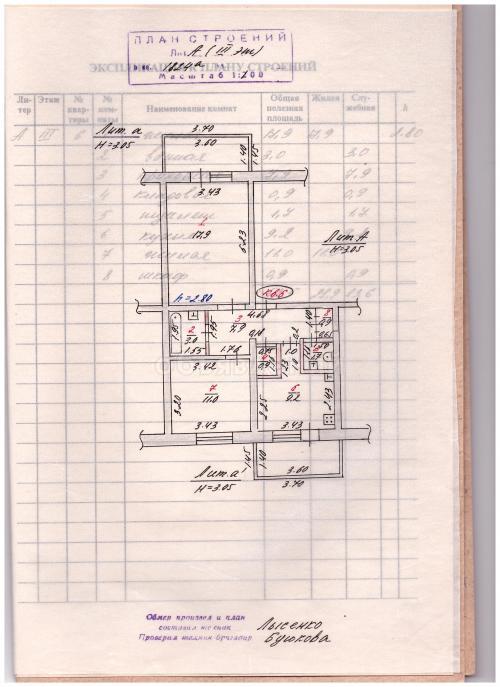 ПЛАН СТРОЕНИЙ
Лит. А (III эт)
1824а
Масштаб 1:200
ЭКСПЛИКАЦИЯ К ПЛАНУ СТРОЕНИЙ
Ли-тер
Этаж
№ квар-тиры
№ ком-наты
Наименование комнат
Общая полезная площадь
Жилая
Слу-жебная
h
А III 6 17,9 17,9 2.80
2 ванная 3,0 3,0
3 7,9 7,9
4 кладовая 0,9 0,9
5 туалет 1,7 1,7
6 кухня 9.2
7 жилая 11.0
8 шкаф 0,9 0,9
Лит. а
Н=3.05
3.70
3.60
1.40
1.45
3.43
1
17,9
5.23
Лит. А
Н=3.05
h=2.80
кв.6
4.68
3
7.9
1.95
2
3.0
1.55
1.95
1.70
8
0,9
1.40
0.65
3.42
7
11.0
3.20
3.43
6
9.2
2.25
2.43
3.43
1.45
1.40
3.60
3.70
Лит. а'
Н=3.05
Обмер произвел и план
составил техник
Проверил техник-бригадир
Лысенко
Бушкова